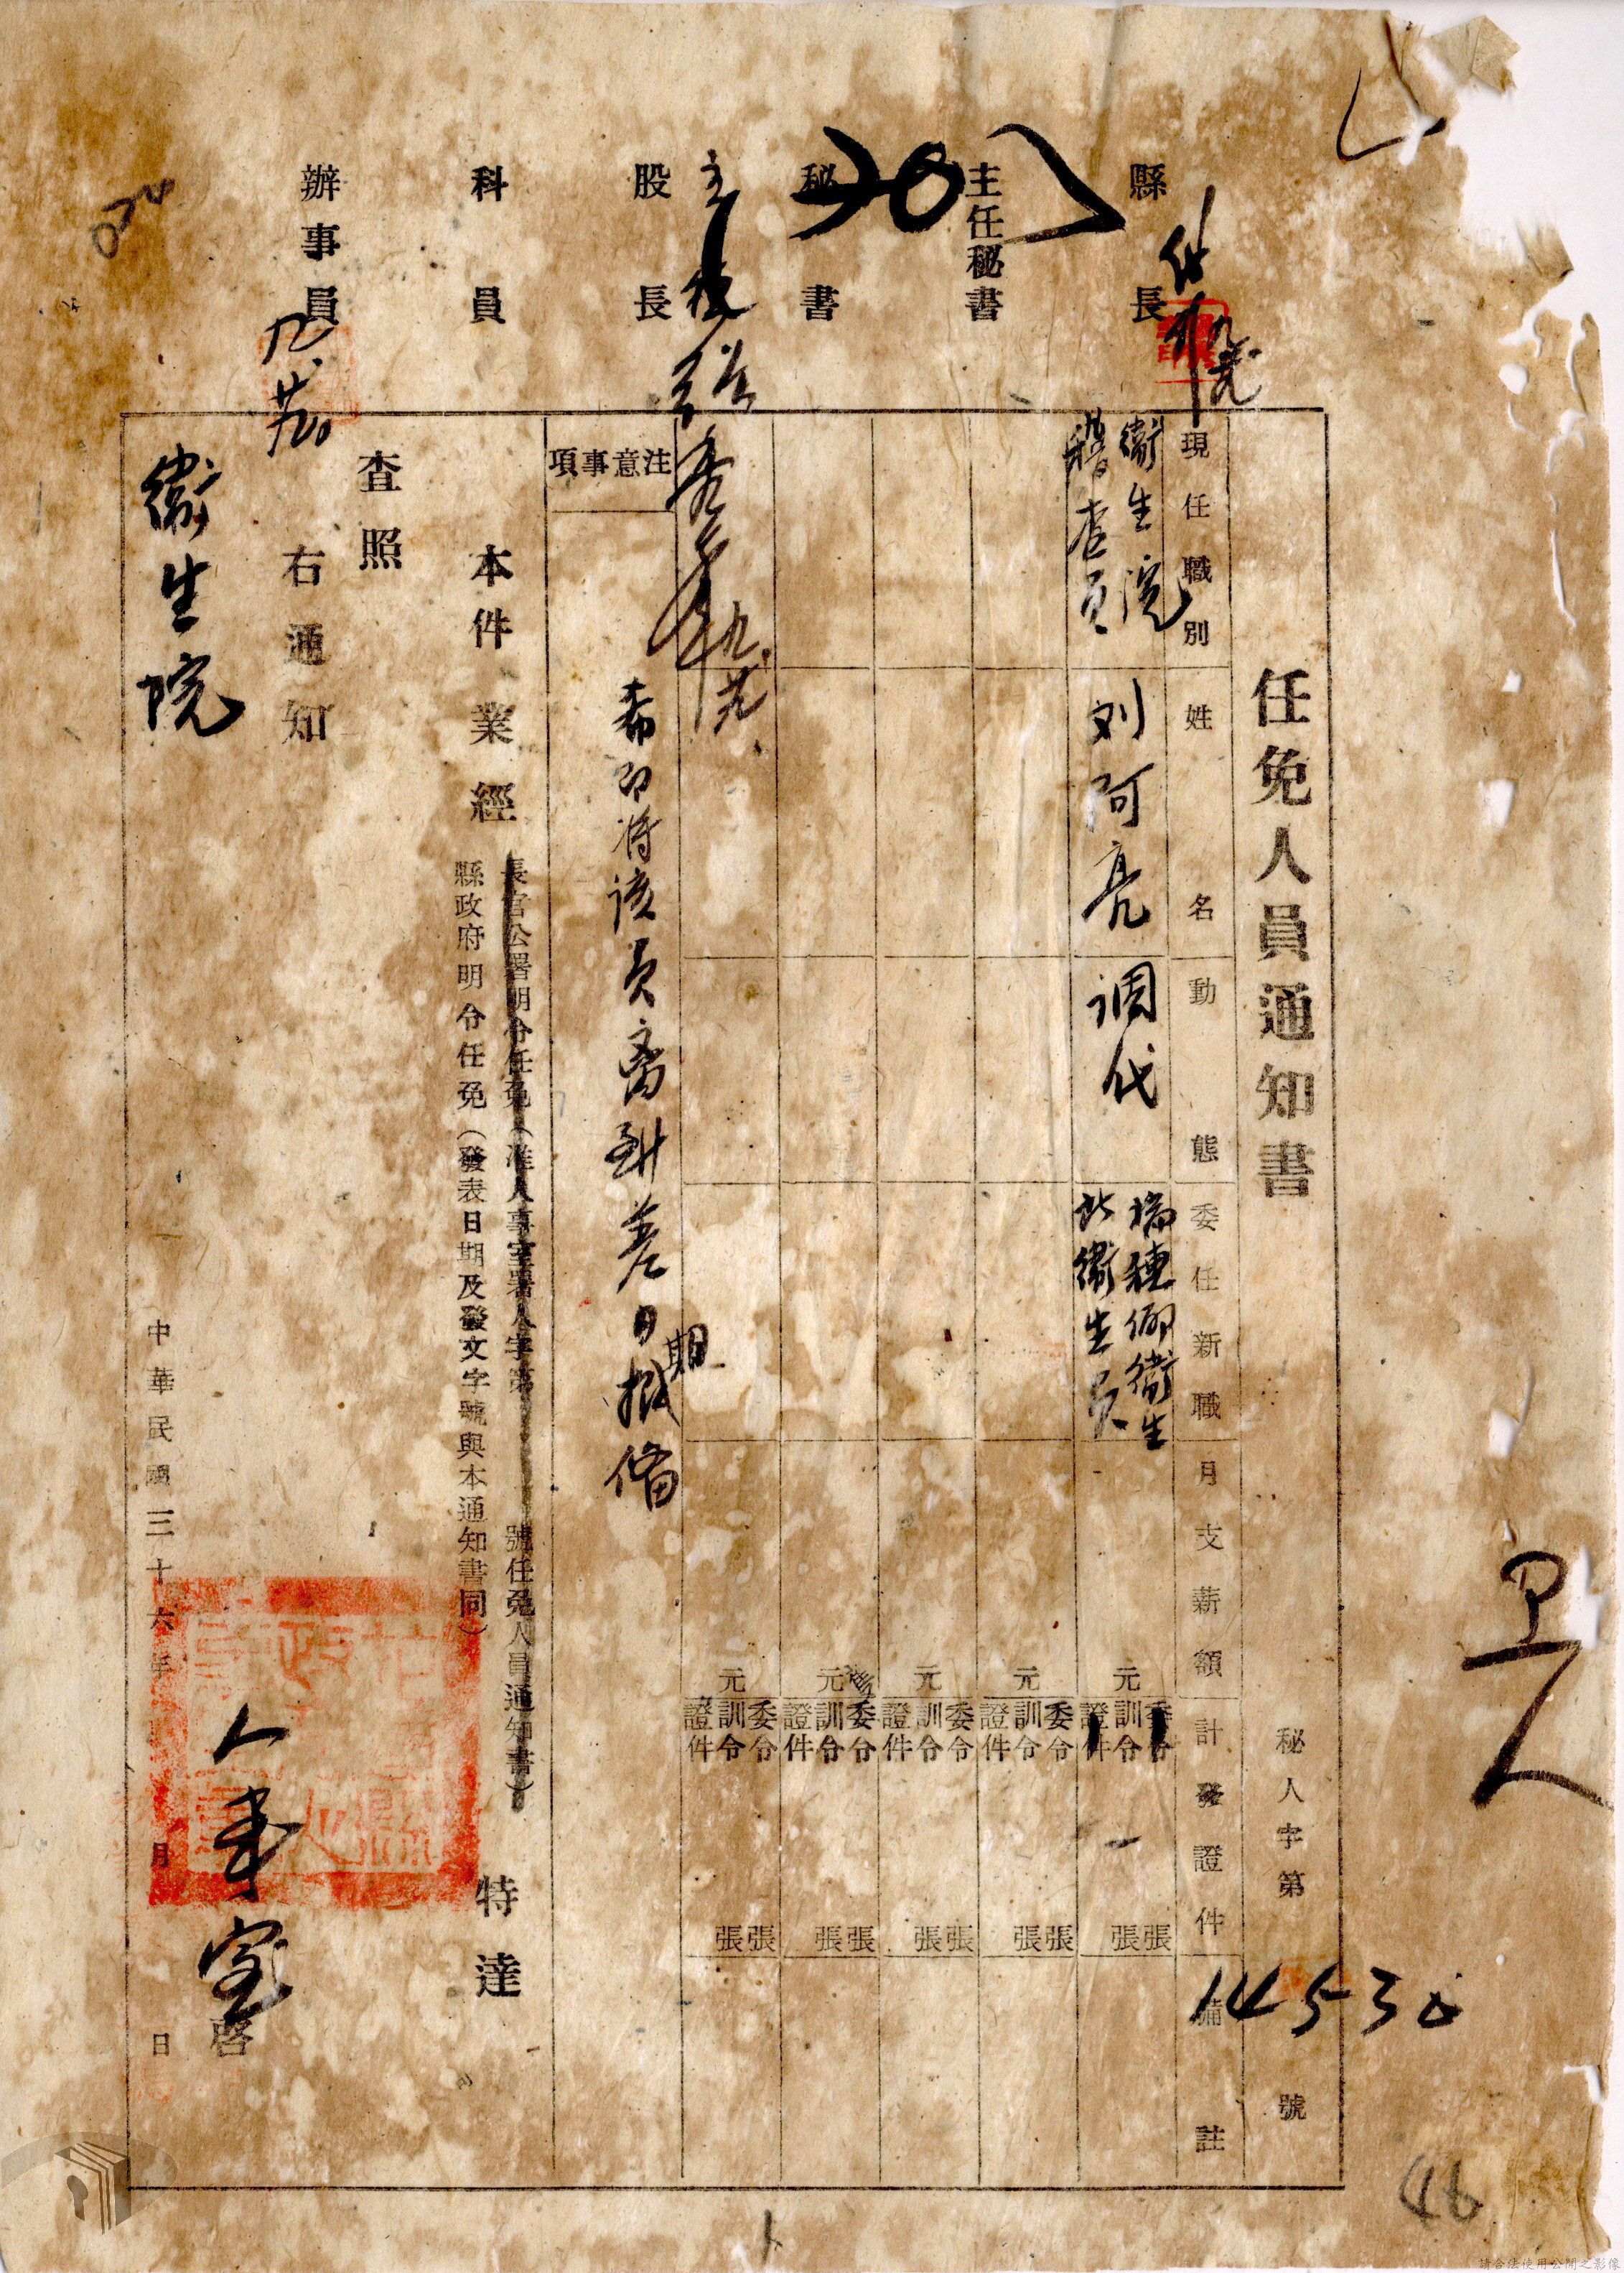 縣長
主任秘書
秘書
股長
科員
辦事員
任免人員通知書
秘人字第 號
14530
現任職別
姓名
動態
委任新職
月支薪額
計發證件
備註
衛生院
稽查員
刘阿亮
调代
瑞穗鄉衛生
所衛生員
元
委令 張
訓令 一 張
證件
元
委令 張
訓令 張
證件
元
委令 張
訓令 張
證件
元
委令 張
訓令 張
證件
元
委令 張
訓令 張
證件
注意事項
希即将该員离到差日期
報備
本件業經
長官公署明令任免(准人事室署人字第 號任免人員通知書)
縣政府明令任免(發表日期及發文字號與本通知書同)
特達
查照
右通知
衛生院
人事室 啓
中華民國三十六年 月 日
46
請合法使用公開之影像